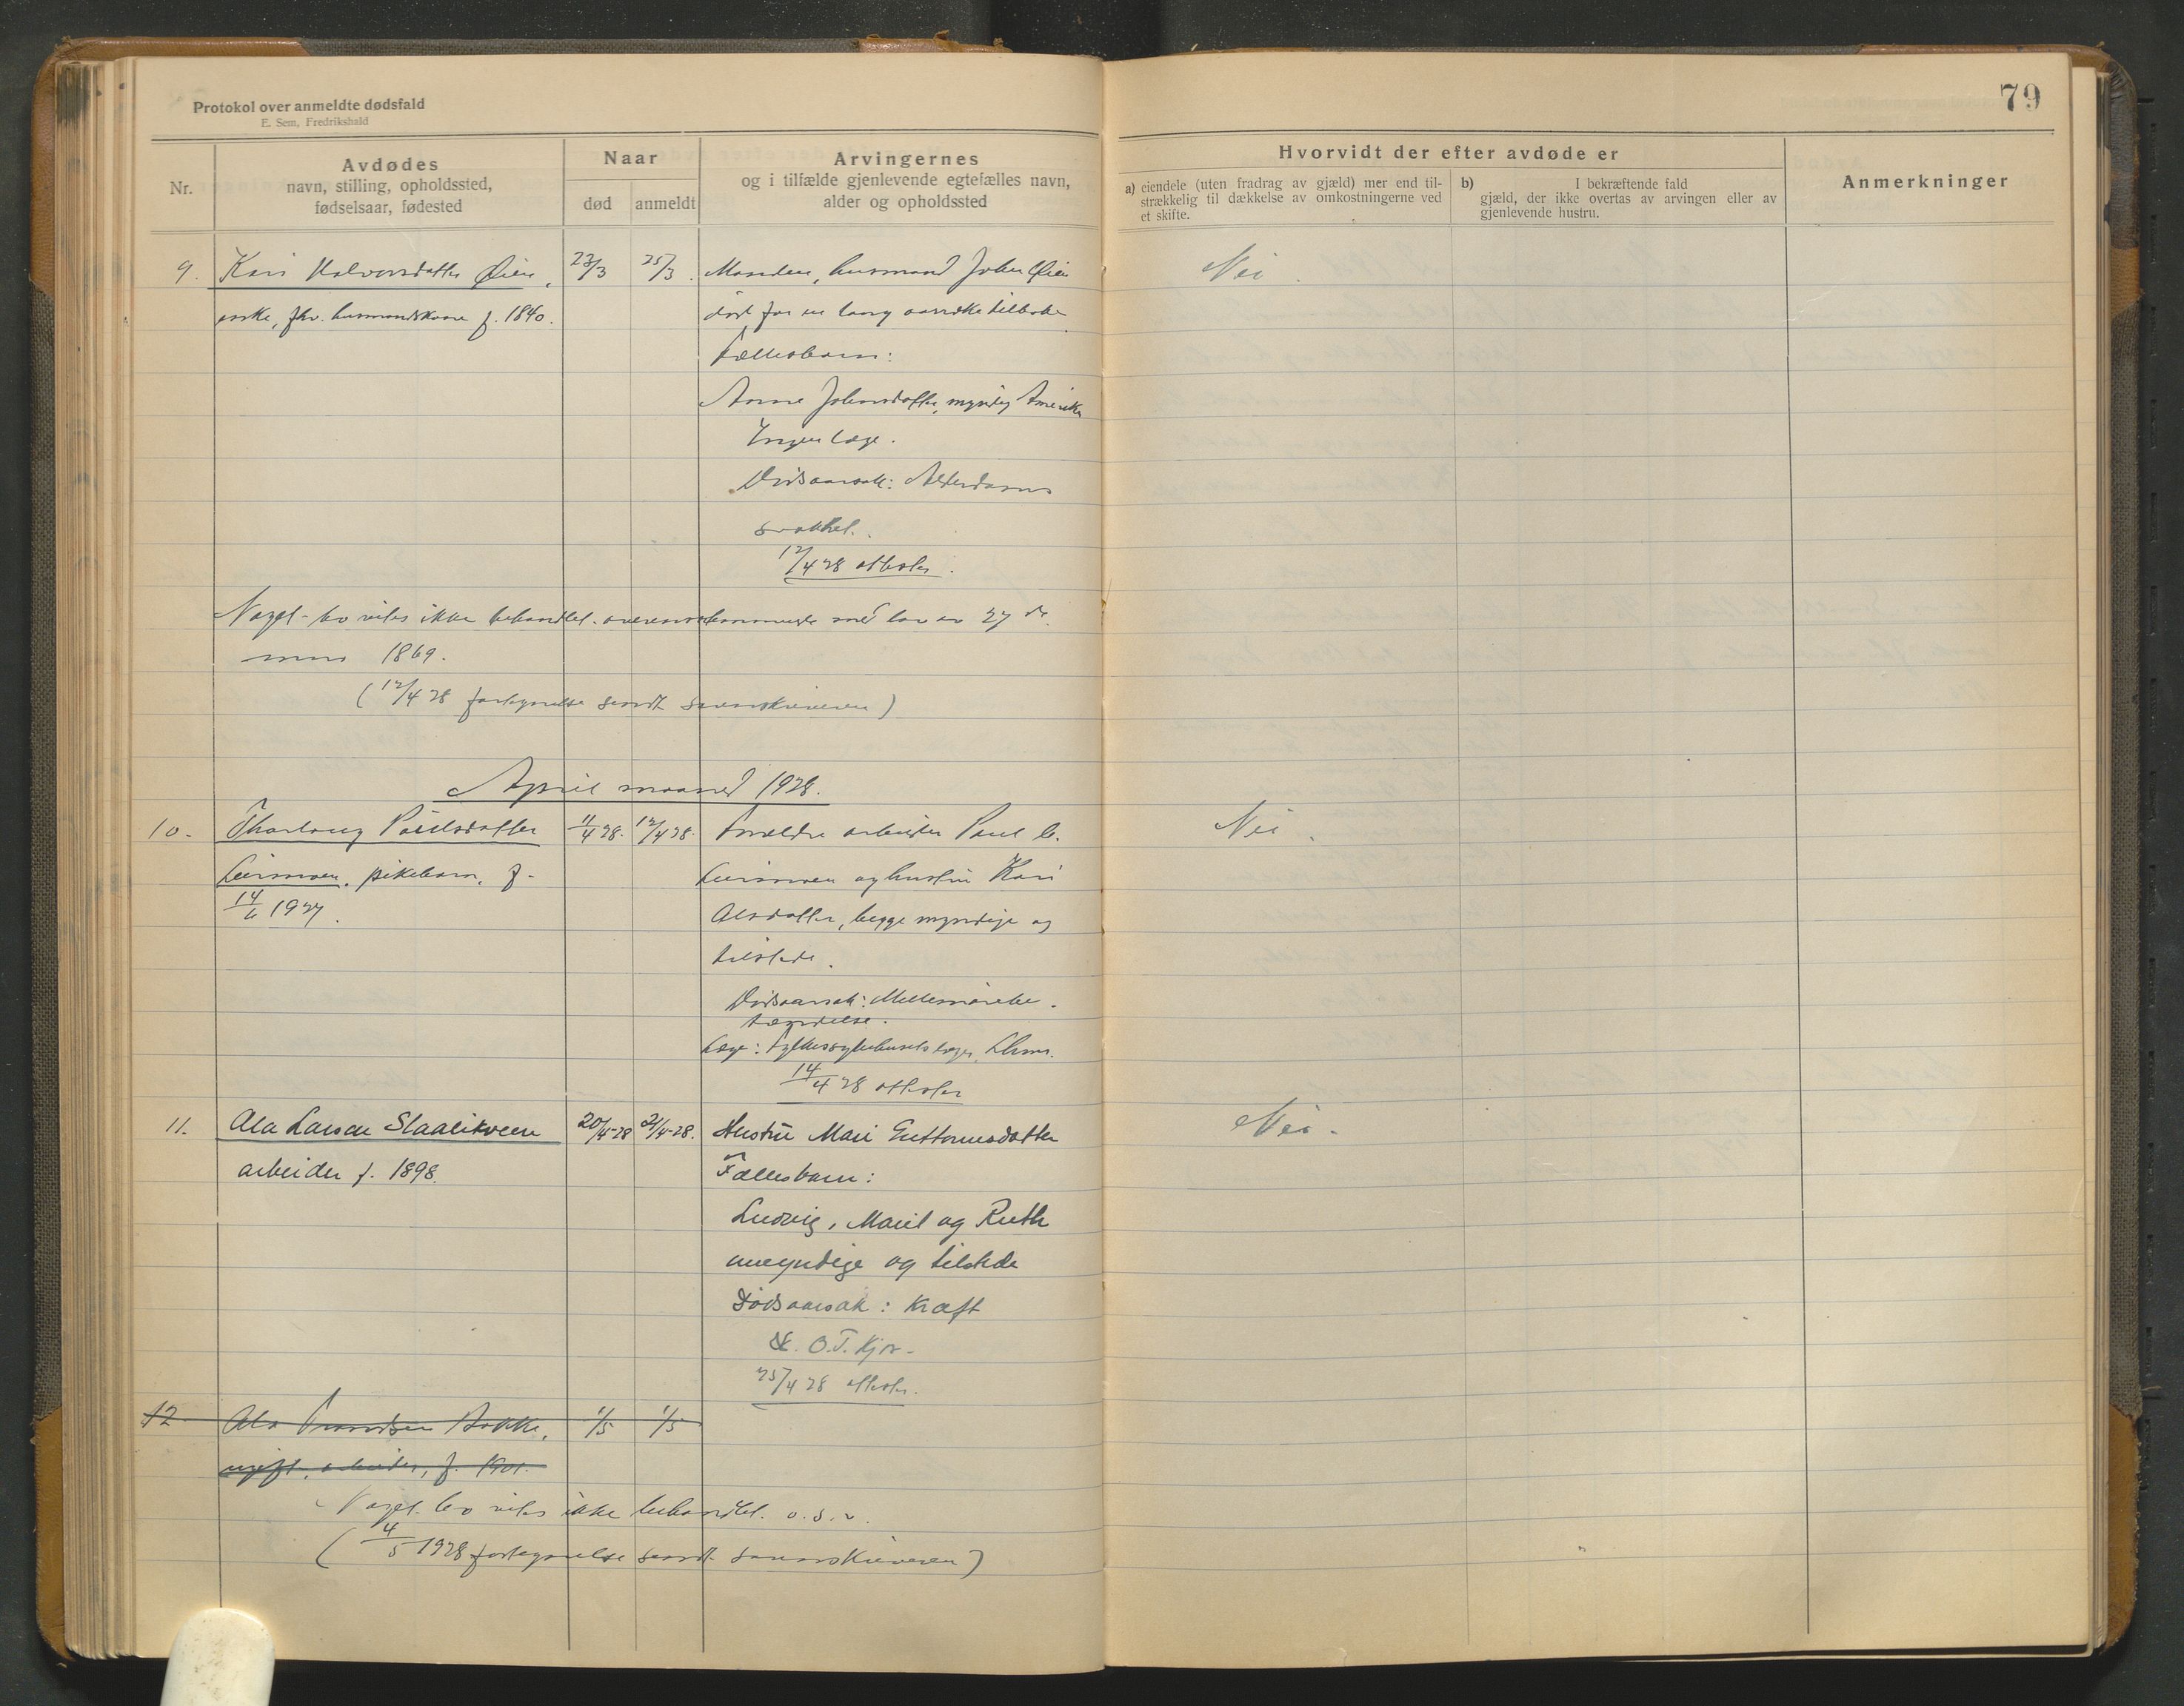 Protokol over anmeldte dødsfald
E. Sem, Fredrikshald
79
Nr.
Avdødes
navn, stilling, opholdssted,
fødselsaar, fødested
Naar
død
anmeldt
Arvingernes
og i tilfælde gjenlevende egtefælles navn,
alder og opholdssted
Hvorvidt der efter avdøde er
a) eiendele (uten fradrag av gjæld) mer end til-
strækkelig til dækkelse av omkostningerne ved
et skifte.
b) I bekræftende fald
gjæld, der ikke overtas av arvingen eller av
gjenlevende hustru.
Anmerkninger
9. Kari Halvorsdatter Øien, 23/3 25/3. Manden, husmand John Øien Nei
enke, fhv. husmandskone f. 1840. død for en lang aarrække tilbake.
Fællesbarn:
Anne Johnsdatter, myndig Amerika
Ingen læge.
Dødsaarsak: Alderdoms
svakhet.
12/4 28 attester.
Nøgd. bo vites ikke behandlet overensstemmende med lov av 27 de
mars 1869.
(12/4 28 fortegnelse sendt sorenskriveren)
April maaned 1928.
10. Thorlaug Paulsdatter 11/4 28. 12/4 28. Forældre arbeider Paul O. Nei.
Leirmoen, pikebarn, f. Leirmoen og hustru Kari
14/6 1927. Olsdatter, begge myndige og
tilstede.
Dødsaarsak: Mellemørebe-
tændelse.
Læge: Fylkessykehusets læge, Lhmr.
14/4 28 attester
11. Ola Larsen Slaalikveen 20/4-28 21/4-28. Hustru Mari Guttormsdatter Nei.
arbeider f. 1898. Fællesbarn:
Ludvig, Marit og Ruth
umyndige og tilstede
Dødsaarsak: Kræft
O. T. Kjos.
25/4 28 attester.
12 Ola Trondsen Bakke, 1/5 1/5
ugift, arbeider, f. 1901.
bo vites ikke behandlet. o.s.v.
(4/5 1928 fortegnelse sendt sorenskriveren)